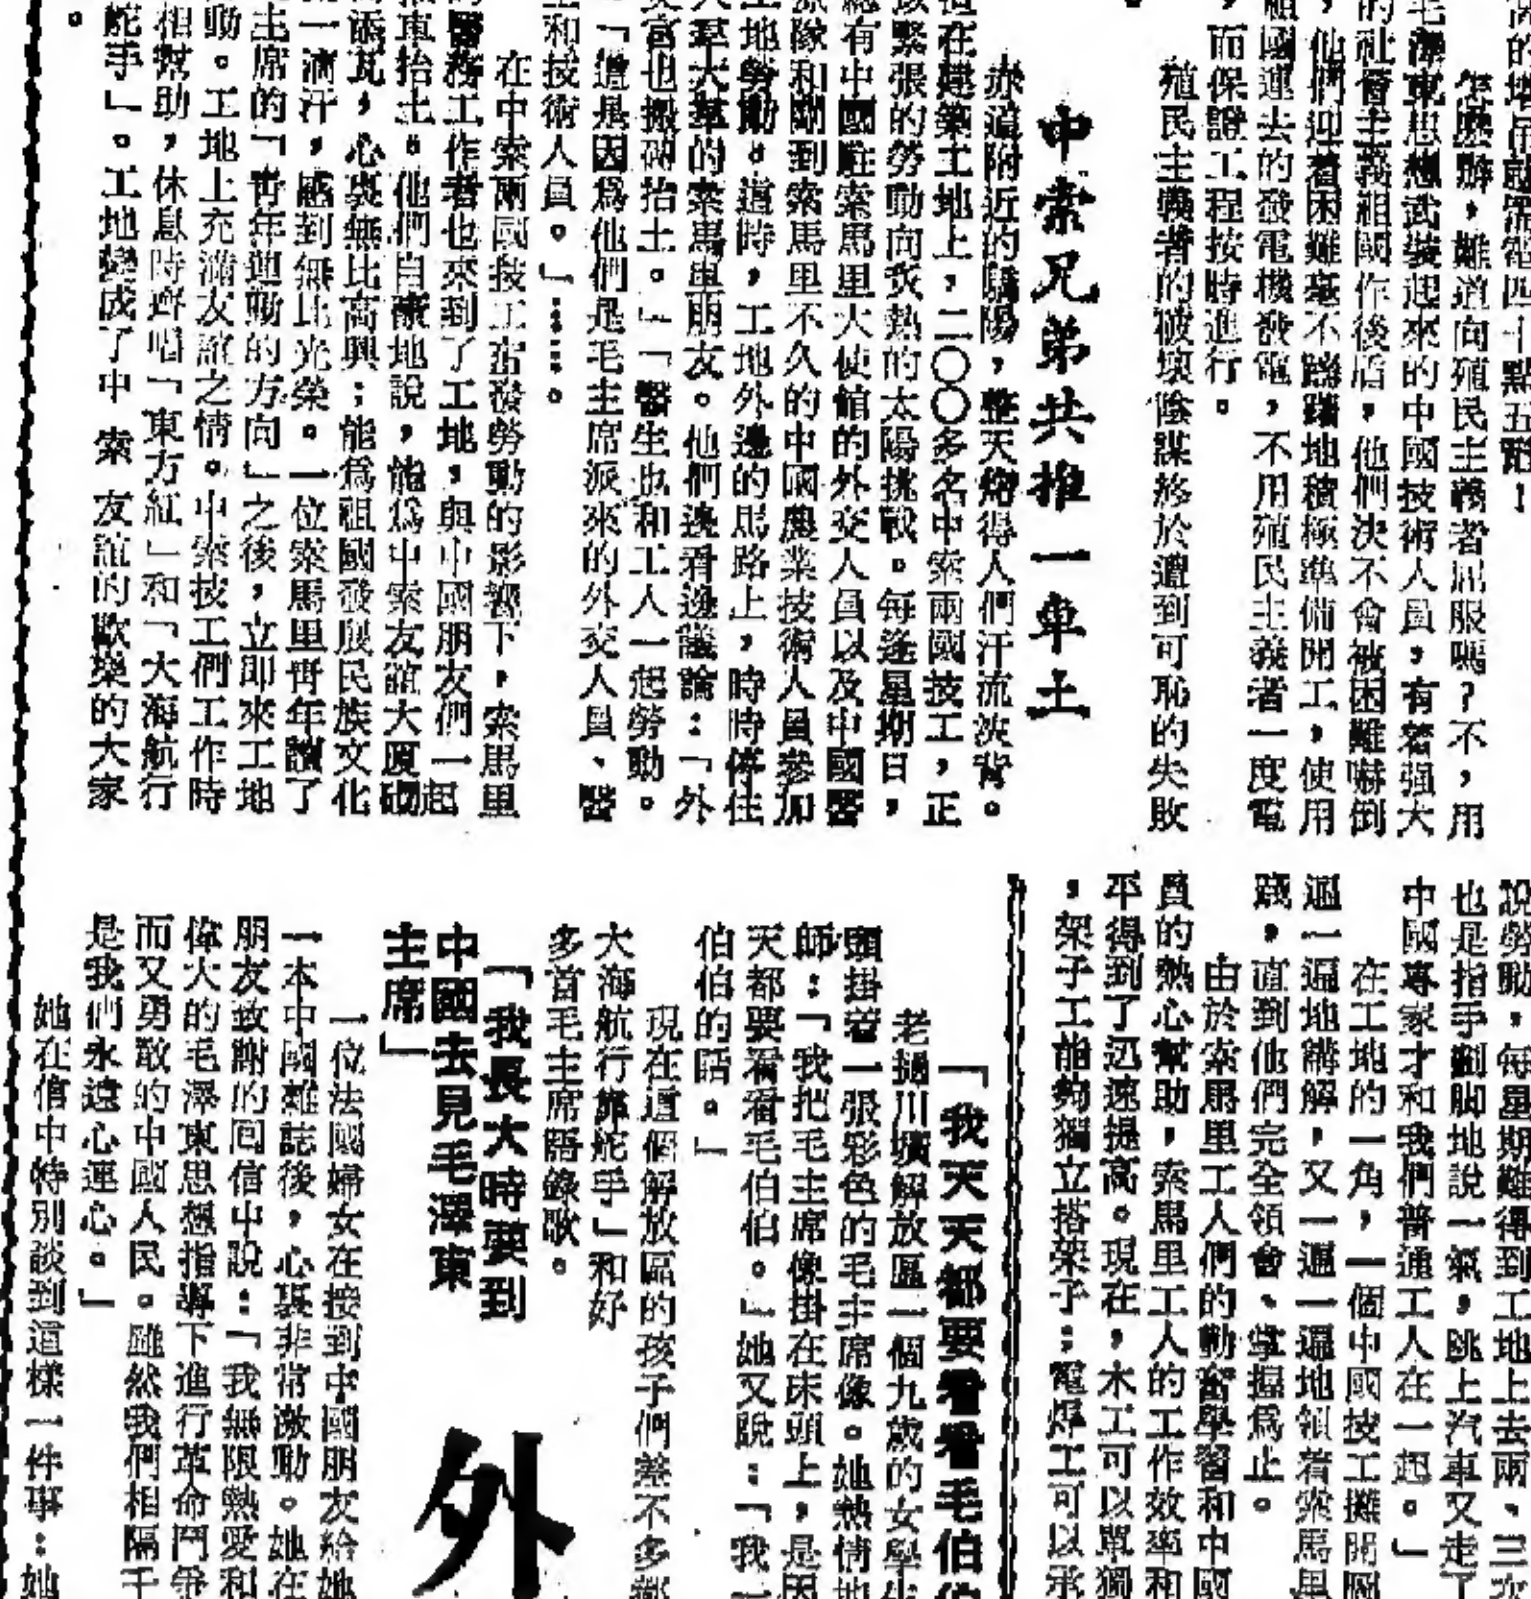 的塔吊就需電四十點五瓩！
怎麼辦，難道向殖民主義者屈服嗎？不，用
毛澤東思想武裝起來的中國技術人員，有着强大
的社會主義祖國作後盾，他們決不會被困難嚇倒
，他們迎着困難毫不躊躇地積極準備開工，使用
祖國運去的發電機發電，不用殖民主義者一度電
，而保證工程按時進行。
殖民主義者的破壞陰謀終於遭到可恥的失敗
。
中索兄弟共推一車土
赤道附近的驕陽，整天烤得人們汗流浹背。
在建築工地上，二〇〇多名中索兩國技工，正
緊張的勞動向炎熱的太陽挑戰。每逢星期日，
總有中國駐索馬里大使館的外交人員以及中國醫
療隊和剛到索馬里不久的中國農業技術人員參加
工地勞動。這時，工地外邊的馬路上，時時停住
大羣大羣的索馬里朋友。他們邊看邊議論：「外
交官也搬磚抬土。」「醫生也和工人一起勞動。
「這是因爲他們是毛主席派來的外交人員、醫
生和技術人員。」……。
在中索兩國技工奮發勞動的影響下，索馬里
的醫務工作者也來到了工地，與中國朋友們一起
推車抬土。他們自豪地說，能爲中索友誼大厦砌
添瓦，心裏無比高興；能爲祖國發展民族文化
一滴汗，感到無比光榮。一位索馬里青年讀了
主席的「青年運動的方向」之後，立即來工地
動。工地上充滿友誼之情。中索技工們工作時
相幫助，休息時齊唱「東方紅」和「大海航行
舵手」。工地變成了中索友誼的歡樂的大家
。
說勞動，每星期難得到工地上去兩、三次
也是指手劃脚地說一氣，跳上汽車又走了
中國專家才和我們普通工人在一起。」
在工地的一角，一個中國技工攤開圖
遍一遍地講解，又一遍一遍地領着索馬里
踐，直到他們完全領會、掌握爲止。
由於索馬里工人們的勤奮學習和中國
員的熱心幫助，索馬里工人的工作效率和
平得到了迅速提高。現在，木工可以單獨
，架子工能夠獨立搭架子；電焊工可以承
「我天天都要看看毛伯伯
老撾川壙解放區一個九歲的女學生
頭掛着一張彩色的毛主席像。她熱情地
師：「我把毛主席像掛在床頭上，是因
天都要看看毛伯伯。」她又說：「我一
伯伯的話。」
現在這個解放區的孩子們差不多都
大海航行靠舵手」和好
多首毛主席語錄歌。
外
「我長大時要到
中國去見毛澤東
主席」
一位法國婦女在接到中國朋友給她
一本中國雜誌後，心裏非常激動。她在
朋友致謝的回信中說：「我無限熱愛和
偉大的毛澤東思想指導下進行革命鬥爭
而又勇敢的中國人民。雖然我們相隔千
是我們永遠心連心。」
她在信中特別談到這樣一件事：她